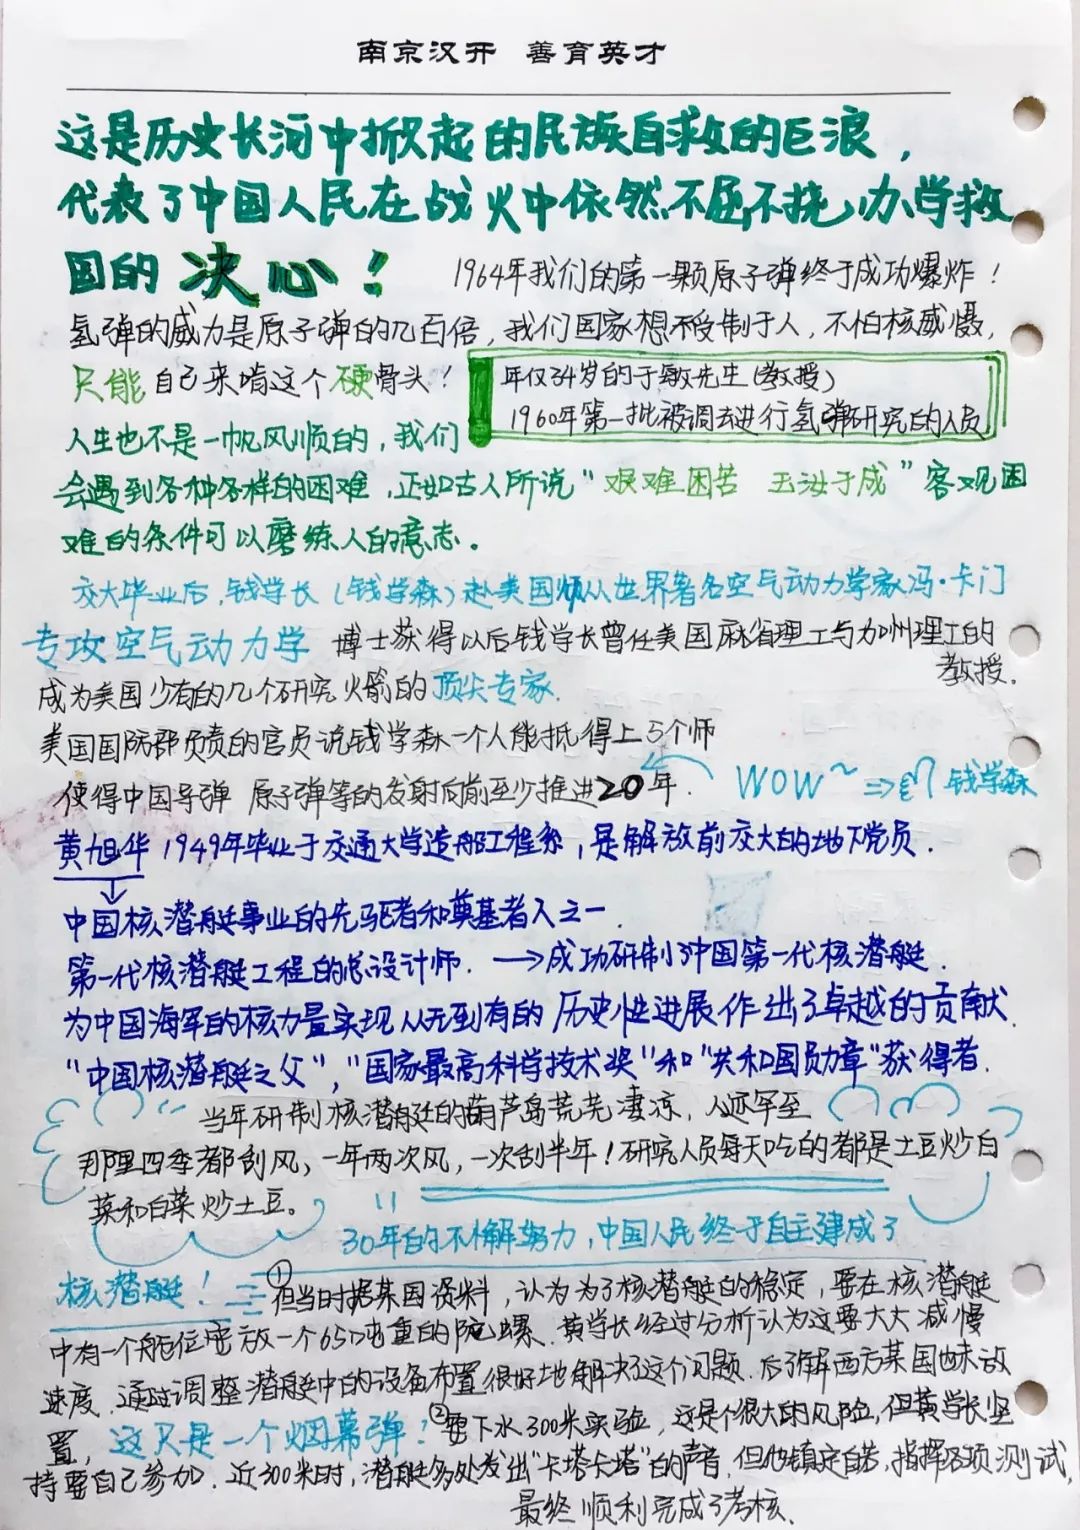 南京汉开 善育英才
这是历史长河中掀起的民族自救的巨浪，
代表了中国人民在战火中依然不屈不挠，办学救
国的决心！
1964年我们的第一颗原子弹终于成功爆炸！
氢弹的威力是原子弹的几百倍，我们国家想不受制于人，不怕核威慑，
只能自己来啃这个硬骨头！
年仅34岁的于敏先生（教授）
1960年第一批被调去进行氢弹研究的人员
人生也不是一帆风顺的，我们
会遇到各种各样的困难，正如古人所说“艰难困苦 玉汝于成”客观困
难的条件可以磨练人的意志。
交大毕业后，钱学长（钱学森）赴美国师从世界著名空气动力学家冯·卡门
专攻空气动力学 博士获得以后钱学长曾任美国麻省理工与加州理工的
教授.
成为美国少有的几个研究火箭的顶尖专家.
美国国防部负责的官员说钱学森一个人能抵得上5个师
使得中国导弹 原子弹等的发射向前至少推进20年.
WOW~ ⇒ 钱学森
黄旭华 1949年毕业于交通大学造船工程系，是解放前交大的地下党员.
中国核潜艇事业的先驱者和奠基者人之一
第一代核潜艇工程的总设计师. →成功研制了中国第一代核潜艇.
为中国海军的核力量实现从无到有的历史性进展作出了卓越的贡献.
“中国核潜艇之父”,“国家最高科学技术奖”和“共和国勋章”获得者.
当年研制核潜艇的葫芦岛荒芜凄凉，人迹罕至
那里四季都刮风，一年两次风，一次刮半年！研究人员每天吃的都是土豆炒白
菜和白菜炒土豆。
30年的不懈努力，中国人民终于自主建成了
核潜艇！
①但当时据某国资料，认为为了核潜艇的稳定，要在核潜艇
中有一个舱位安放一个65吨重的陀螺.黄学长经过分析认为这要大大减慢
速度.通过调整潜艇中的设备布置很好地解决了这个问题.后了解西方某国也未放
置，这只是一个烟幕弹！②要下水300米实验，这是个很大的风险，但黄学长坚
持要自己参加.近300米时，潜艇多处发出“卡塔卡塔”的声音.但他镇定自若，指挥各项测试，
最终顺利完成了考核.